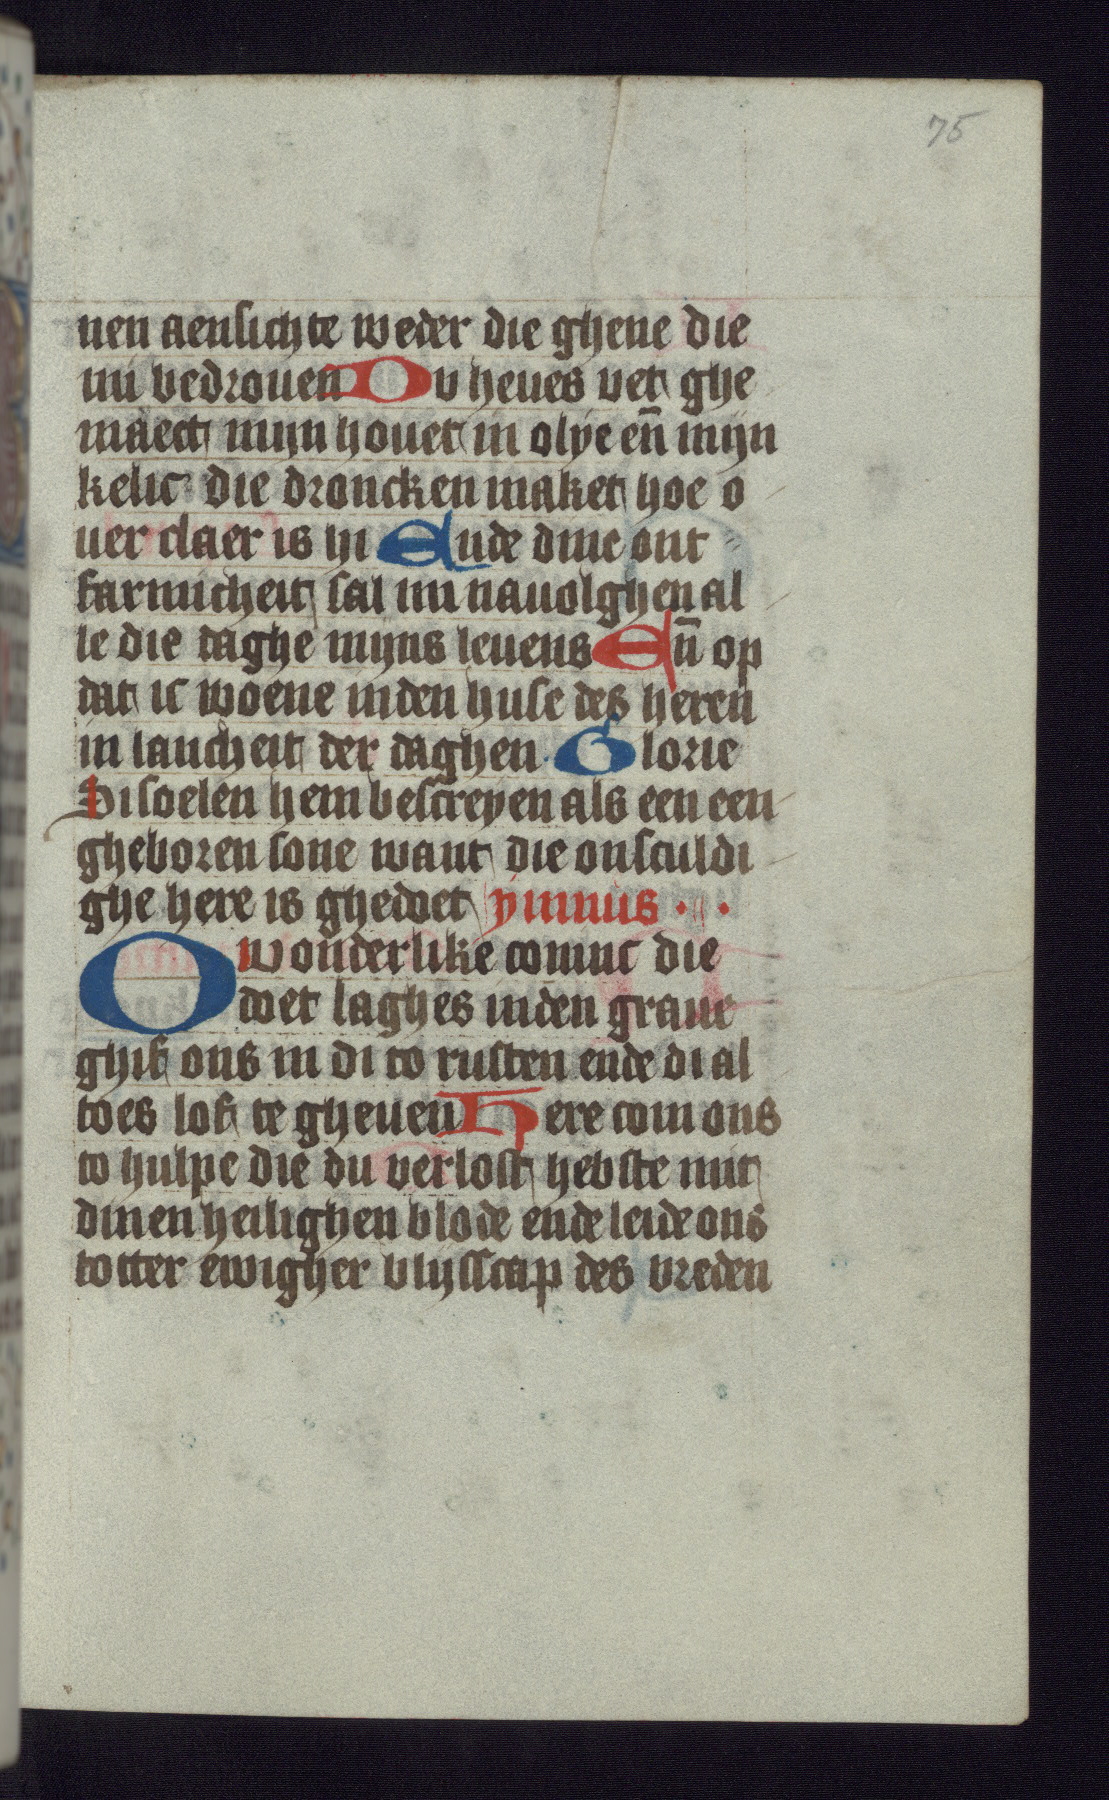 75
nen aensichte weder die ghene die
mi bedrouen Du heues vet ghe
maect mijn houet in olye en̄ mijn
kelic die droncken maket hoe o
uer claer is hi Ende dine ont
farmicheit sal mi nauolghen al
le die daghe mijns leuens En̄ op
dat ic woene inden huse des heren
in lancheit der daghen. Glorie
Si soelen hem bescreyen als een een
gheboren sone want die onsculdi
ghe here is ghedoet ymnus
O wonderlike coninc die
doet laghes inden graue
ghif ons in di to rusten ende di al
toes lof te gheuen Here com ons
to hulpe die du verlost hebste mit
dinen heilighen blode ende leide ons
totter ewigher blijsscap des vreden